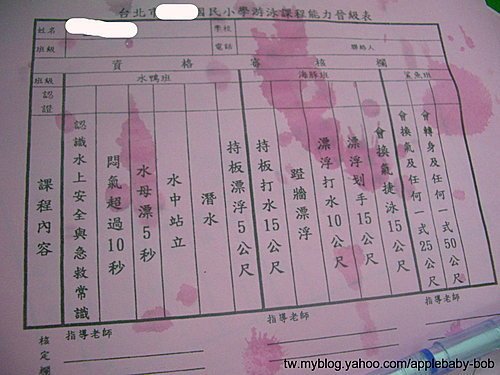 台北市 國民小學游泳課程能力晉級表
姓名
學校
班級
電話
聯絡人
資格審核欄
班級
水鴨班
海豚班
鯊魚班
認證
課程內容
認識水上安全與急救常識
悶氣超過10秒
水母漂5秒
水中站立
潛水
持板漂浮5公尺
持板打水15公尺
蹬牆漂浮
漂浮打水10公尺
漂浮划手15公尺
會換氣捷泳15公尺
會換氣及任何一式25公尺
會轉身及任何一式50公尺
核定欄
指導老師
指導老師
指導老師
tw.myblog.yahoo.com/applebaby-bob